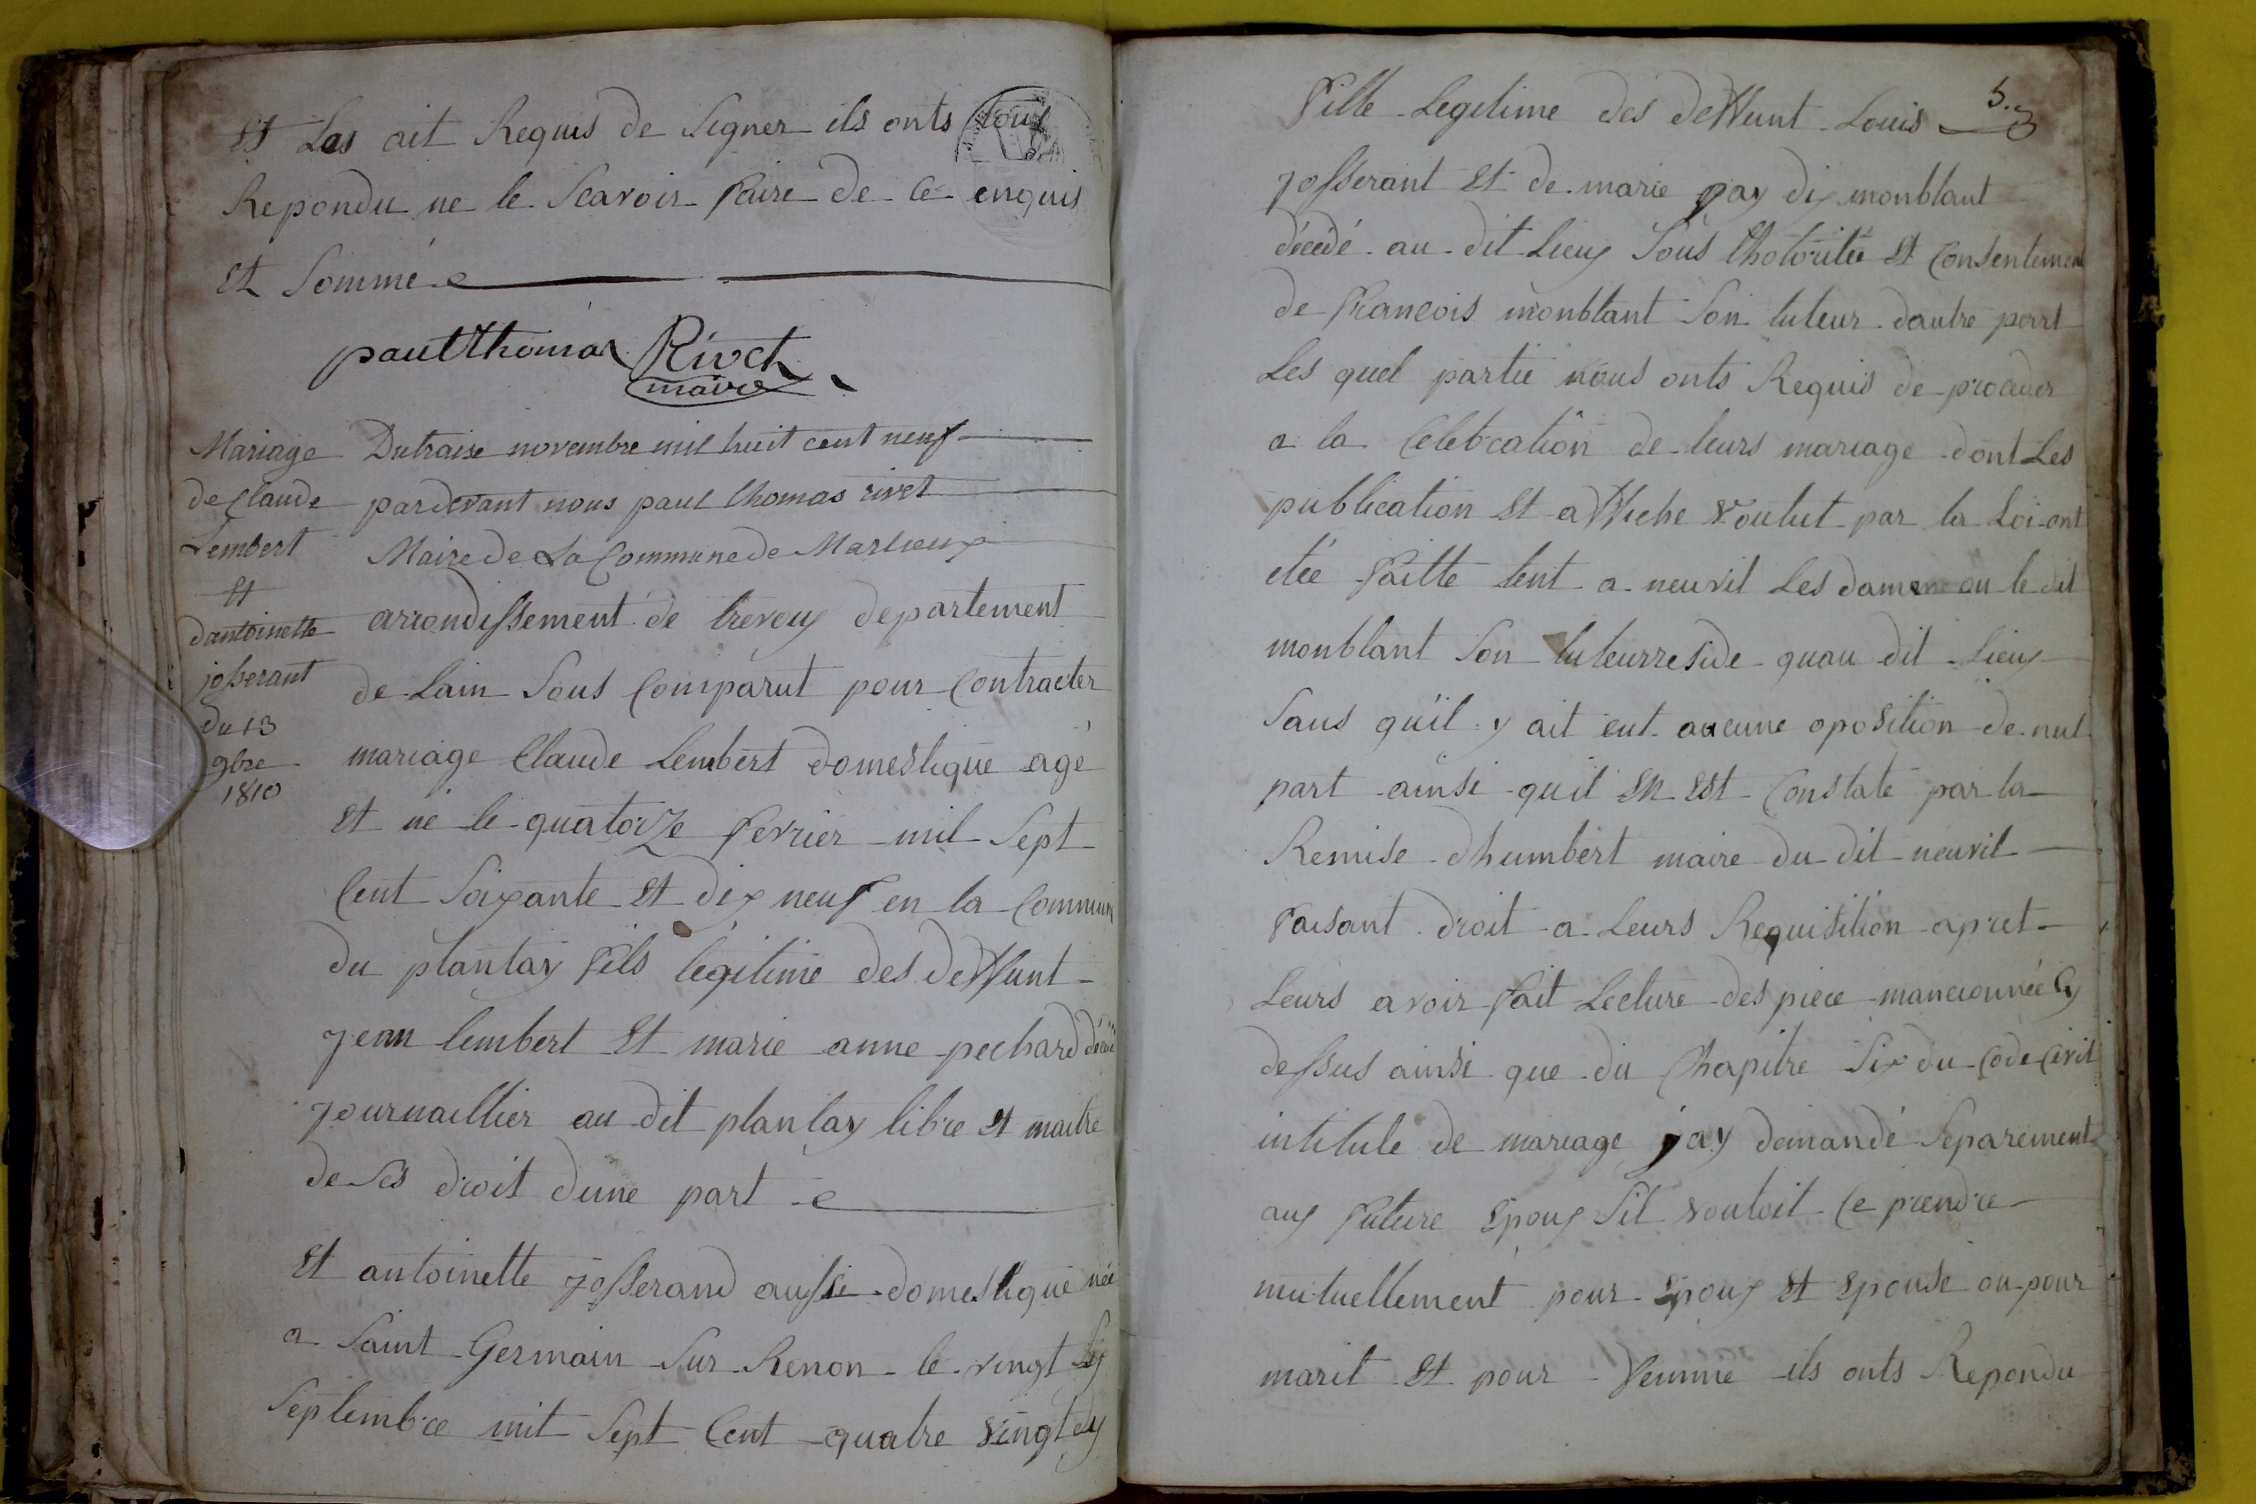 Et Les ait Requis de Signer ils onts tous
Repondu ne le Scavoir faire de ce enquis
Et Sommé
paul thomas Rivet
maire
Mariage
de Claude
Lembert
Et
dantoinette
josserant
du 13
9bre
1810
Du traise novembre mil huit cent neuf
pardevant nous paul thomas rivet
Maire de La Commune de Marlieux
arrondissement de trevoux departement
de Lain Sous Comparut pour Contracter
mariage Claude Lembert domestique agé
Et né le quatorze fevrier mil Sept
Cent Soixante Et dix neuf en la Commun
du plantay fils légitime des deffunt
jean lembert Et marie anne pechard
journaillier au dit plantay libre Et maitre
de Ses droit dune part
Et antoinette josserand aussi domestique née
a Saint Germain Sur Renon le vingt Six
Septembre mil Sept Cent quatre vingt
5.
fille Legitime des deffunt Louis
josserant Et de marie jay dix monblant
décedé au dit Lieux Sous Lhotoritée Et Consentemen
de francois monblant Son tuteur dautre part
Les quel partie nous onts Requis de proceder
a la Celebration de leurs mariage dont Les
publication Et affiche voulut par la Loi ont
etée faitte tent a neuvil Les dames ou le dit
monblant Son tuteur reside quau dit Lieux
Sans quil y ait eut aucune oposition de nul
part ainsi quil En Est Constaté par la
Remise dhumbert maire du dit neuvil
faisant droit a Leurs Requisition apret
Leurs avoir fait Lecture des piece mancionnée Cy
dessus ainsi que du Chapitre Six du Code Civil
intitule de mariage jay demandé Separement
aux future Epoux Sil vouloit Ce prendre
mutuellement pour Epoux Et Epouse ou pour
marit Et pour femme ils onts Repondu